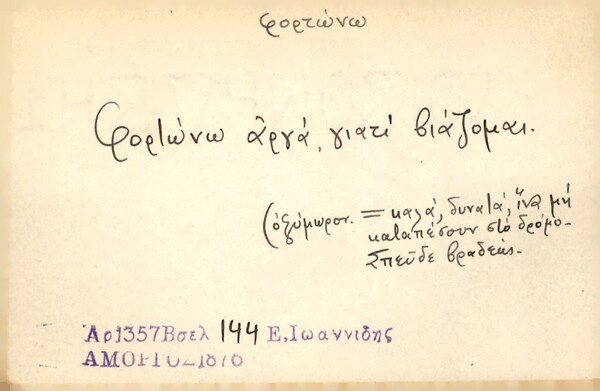 φορτώνω
Φορτώνω ἀργά, γιατί βιάζομαι.
(ὀξύμωρον. = καλά, δυνατά, ἵνα μή
καταπέσουν στό δρόμο-
Σπεῦδε βραδέως.
Ἀρ1357Βσελ 144 Ε,Ιωαννιδης
ΑΜΟΡΓΟΣ1876